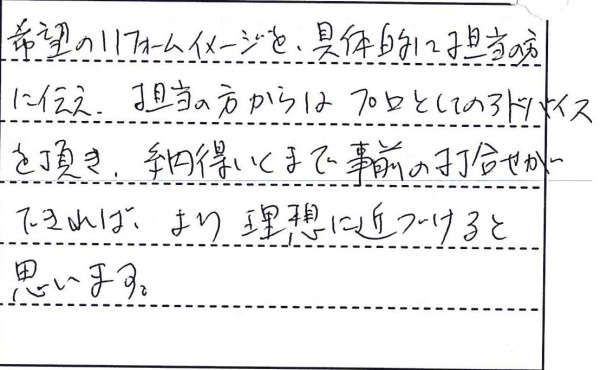 希望のリフォームイメージを、具体的に担当の方
に伝え、担当の方からは プロとしてのアドバイス
を頂き、納得いくまで事前の打合せが
できれば、より 理想に近づけると
思います。